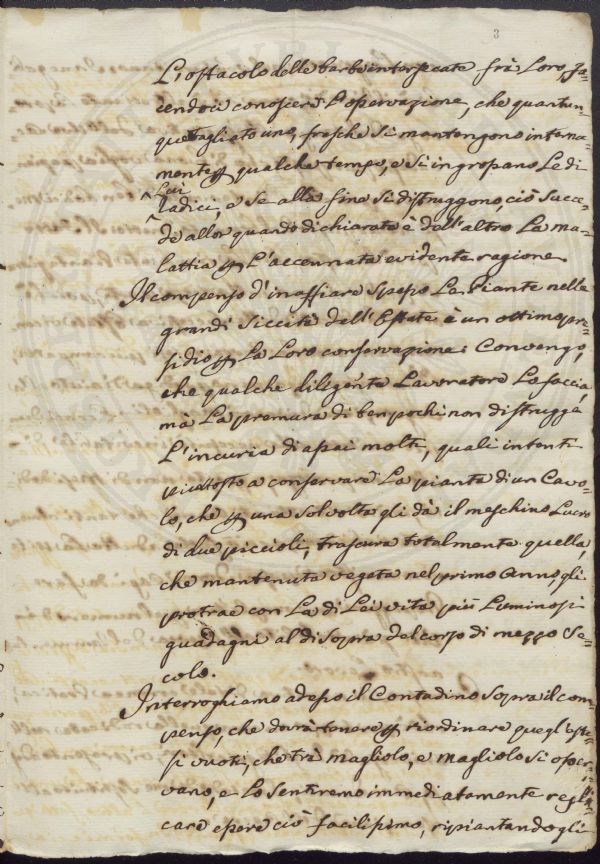 3
L'ostacolo delle barbe intersecate frà Loro, fa=
cendoci conoscere L'osservazione, che quantun=
que tagliate uno, fresche si mantengono interna=
mente p qualche tempo, e si ingropano Le di
Lui
radici, e se alla fine si distruggono, ciò succe=
de allor quando dichiarata è dell'altro La ma=
lattia p L'accennata evidente ragione
Il compenso d'inaffiare spesso Le Piante nelle
grandi siccità dell'Estate è un ottimo pre=
sidio p La Loro conservazione: Convengo,
che qualche diligente Lavoratore Lo faccia,
mà La premura di ben pochi non distrugge
L'incuria di assai molti, quali intenti
piuttosto a conservare La pianta di un Cavo=
lo, che p una sol volta gli dà il meschino Lucro
di due piccioli, trascura totalmente quella,
che mantenuta vegeta nel primo Anno, gli
protrae con La di Lei vita più Luminosi
guadagni al di sopra del corso di mezzo se=
colo.
Interroghiamo adesso il Contadino sopra il com=
penso, che dovrà tenere p riordinare quegl'
si vuoti, che trà magliolo, e magliolo si osser=
vano, e Lo sentiremo immediatamente repli=
care essere ciò facilissimo, ripiantandogli